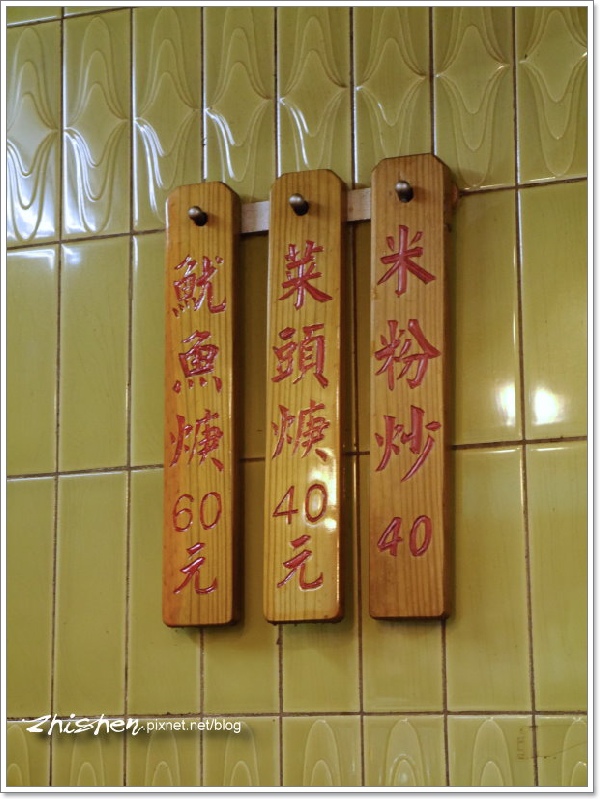 米粉炒40
菜頭焿40元
魷魚焿60元
zhishen.pixnet.net/blog